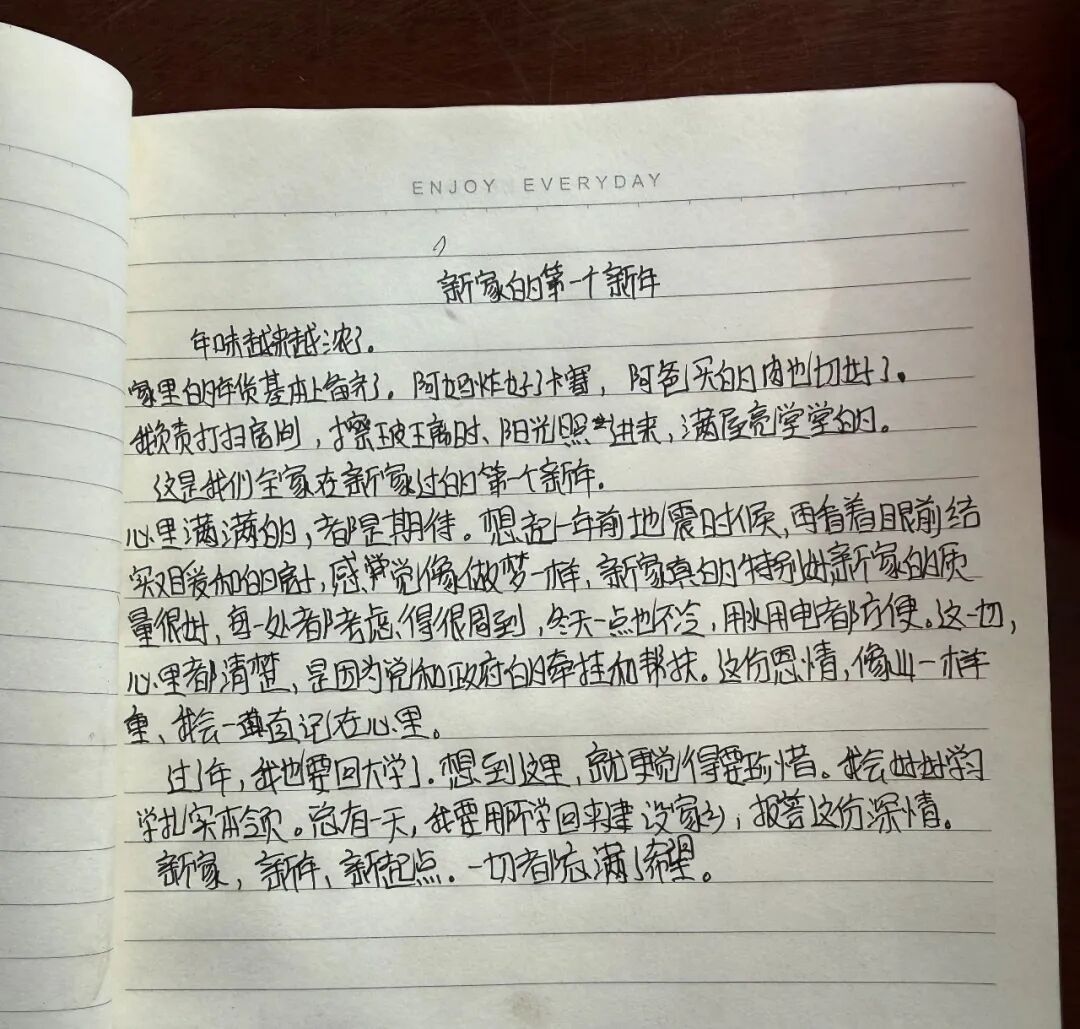 ENJOY EVERYDAY
新家的第一个新年
年味越来越浓了。
家里的年货基本上备齐了。阿妈炸好了卡赛，阿爸买的肉也切好了。
我负责打扫房间，擦玻璃时、阳光照进来，满屋亮堂堂的。
这是我们全家在新家过的第一个新年。
心里满满的，都是期待。想起一年前地震时候，再看着眼前结
实暖和的房子，感觉像做梦一样，新家真的特别好新家的质
量很好，每一处都考虑得很周到，冬天一点也不冷，用水用电都方便。这一切，
心里都清楚，是因为党和政府的牵挂和帮扶。这份恩情，像山一样
重，我会一直记在心里。
过了年，我也要回大学了。想到这里，就更觉得要珍惜。我会好好学习
学扎实本领。总有一天，我要用所学回来建设家乡，报答这份深情。
新家，新年，新起点。一切都充满了希望。